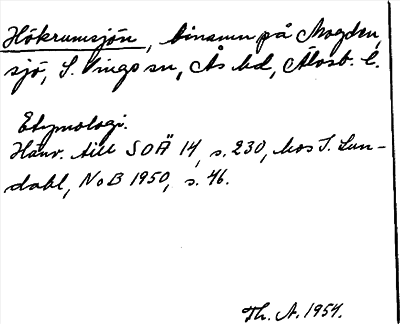 Hökrumsjön, binamn på Mogden,
sjö, S. Vings sn, Ås hd, Älvsb. l.
Etymologi.
Hänv. till SOÄ 14, s. 230, hos I. Lun-
dahl, NoB 1950, s. 46.
Th. A. 1954.